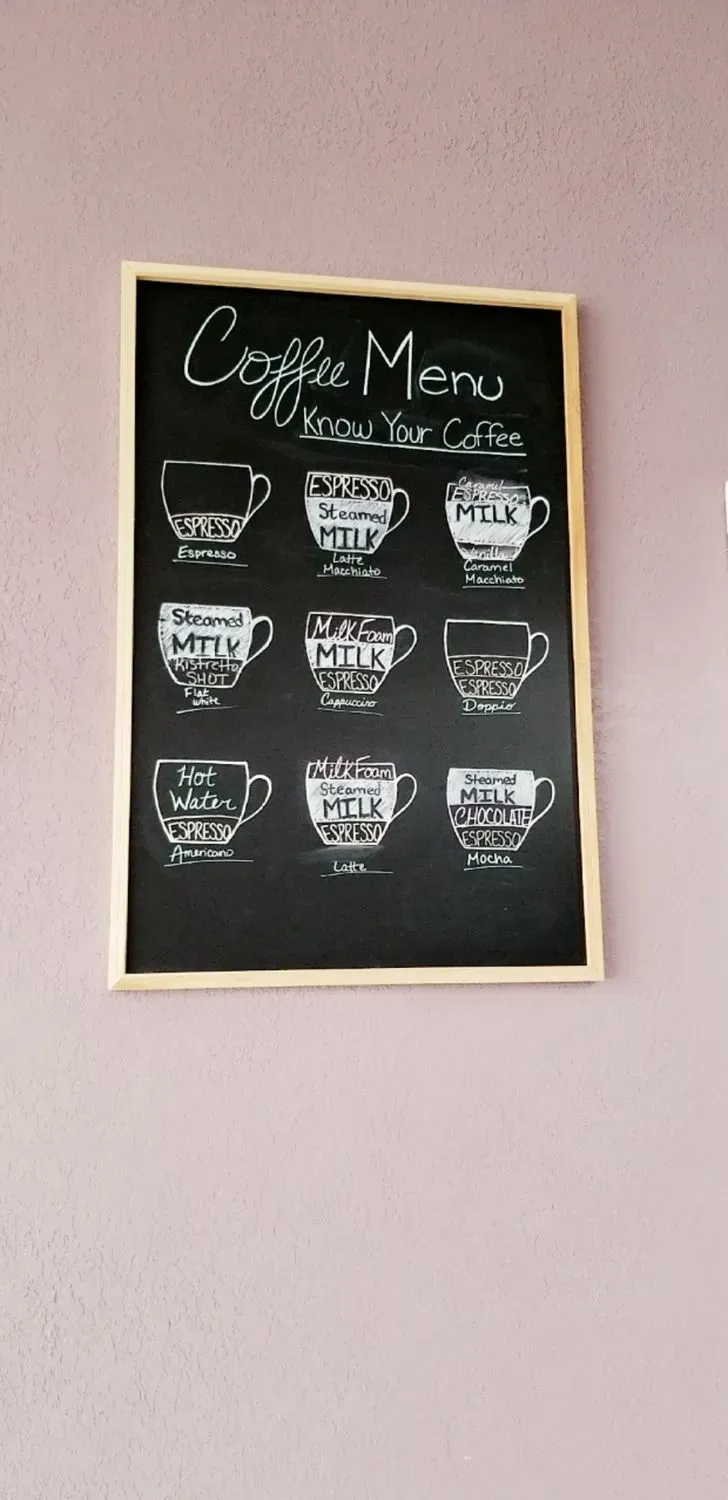 Coffee Menu
Know Your Coffee
ESPRESSO
Espresso
ESPRESSO
Steamed
MILK
Latte
Macchiato
Caramel
ESPRESSO
MILK
Vanilla
Caramel
Macchiato
Steamed
MILK
Ristretto
SHOT
Flat
white
Milk Foam
MILK
ESPRESSO
Cappuccino
ESPRESSO
ESPRESSO
Doppio
Hot
Water
ESPRESSO
Americano
Milk Foam
Steamed
MILK
ESPRESSO
Latte
Steamed
MILK
CHOCOLATE
ESPRESSO
Mocha